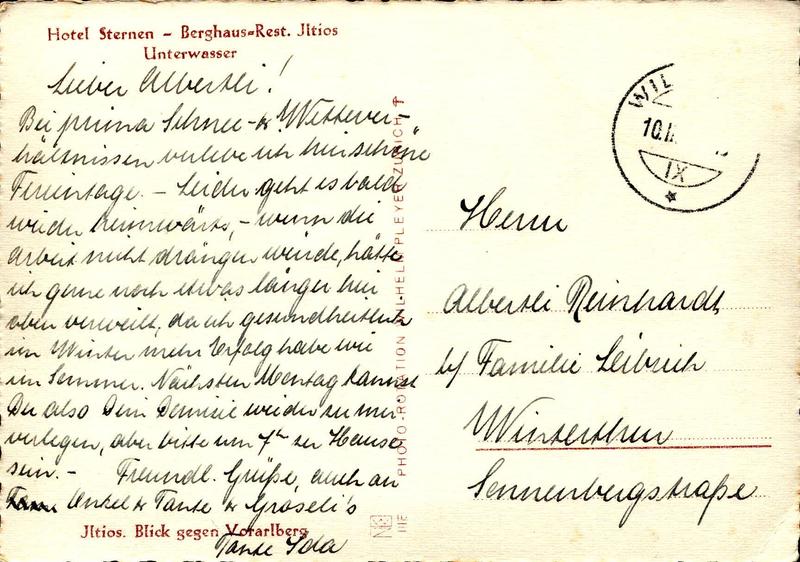 Hotel Sternen – Berghaus-Rest. Jltios
Unterwasser
Lieber Albertli!
Bei prima Schnee- & Wetterver-
hältnissen verlebe ich hier schöne
Ferientage. – Leider geht es bald
wieder heimwärts, – wenn die
Arbeit nicht drängen würde, hätte
ich gerne noch etwas länger hier
oben verweilt, da ich gesundheitlich
im Winter mehr Erfolg habe wie
im Sommer. Nächsten Montag kannst
Du also Dein Domizil wieder zu mir
verlegen, aber bitte um 7 zu Hause
sein. – Freundl. Grüße, auch an
Onkel & Tante & Gröseli's
Tante Ida
Jltios. Blick gegen Vorarlberg
PHOTO-ROTATION WILHELM PLEYER ZÜRICH
WIL
10.II.
IX
Herrn
Albertli Reinhardt
b/ Familie Leibrich
Winterthur
Sonnenbergstraße